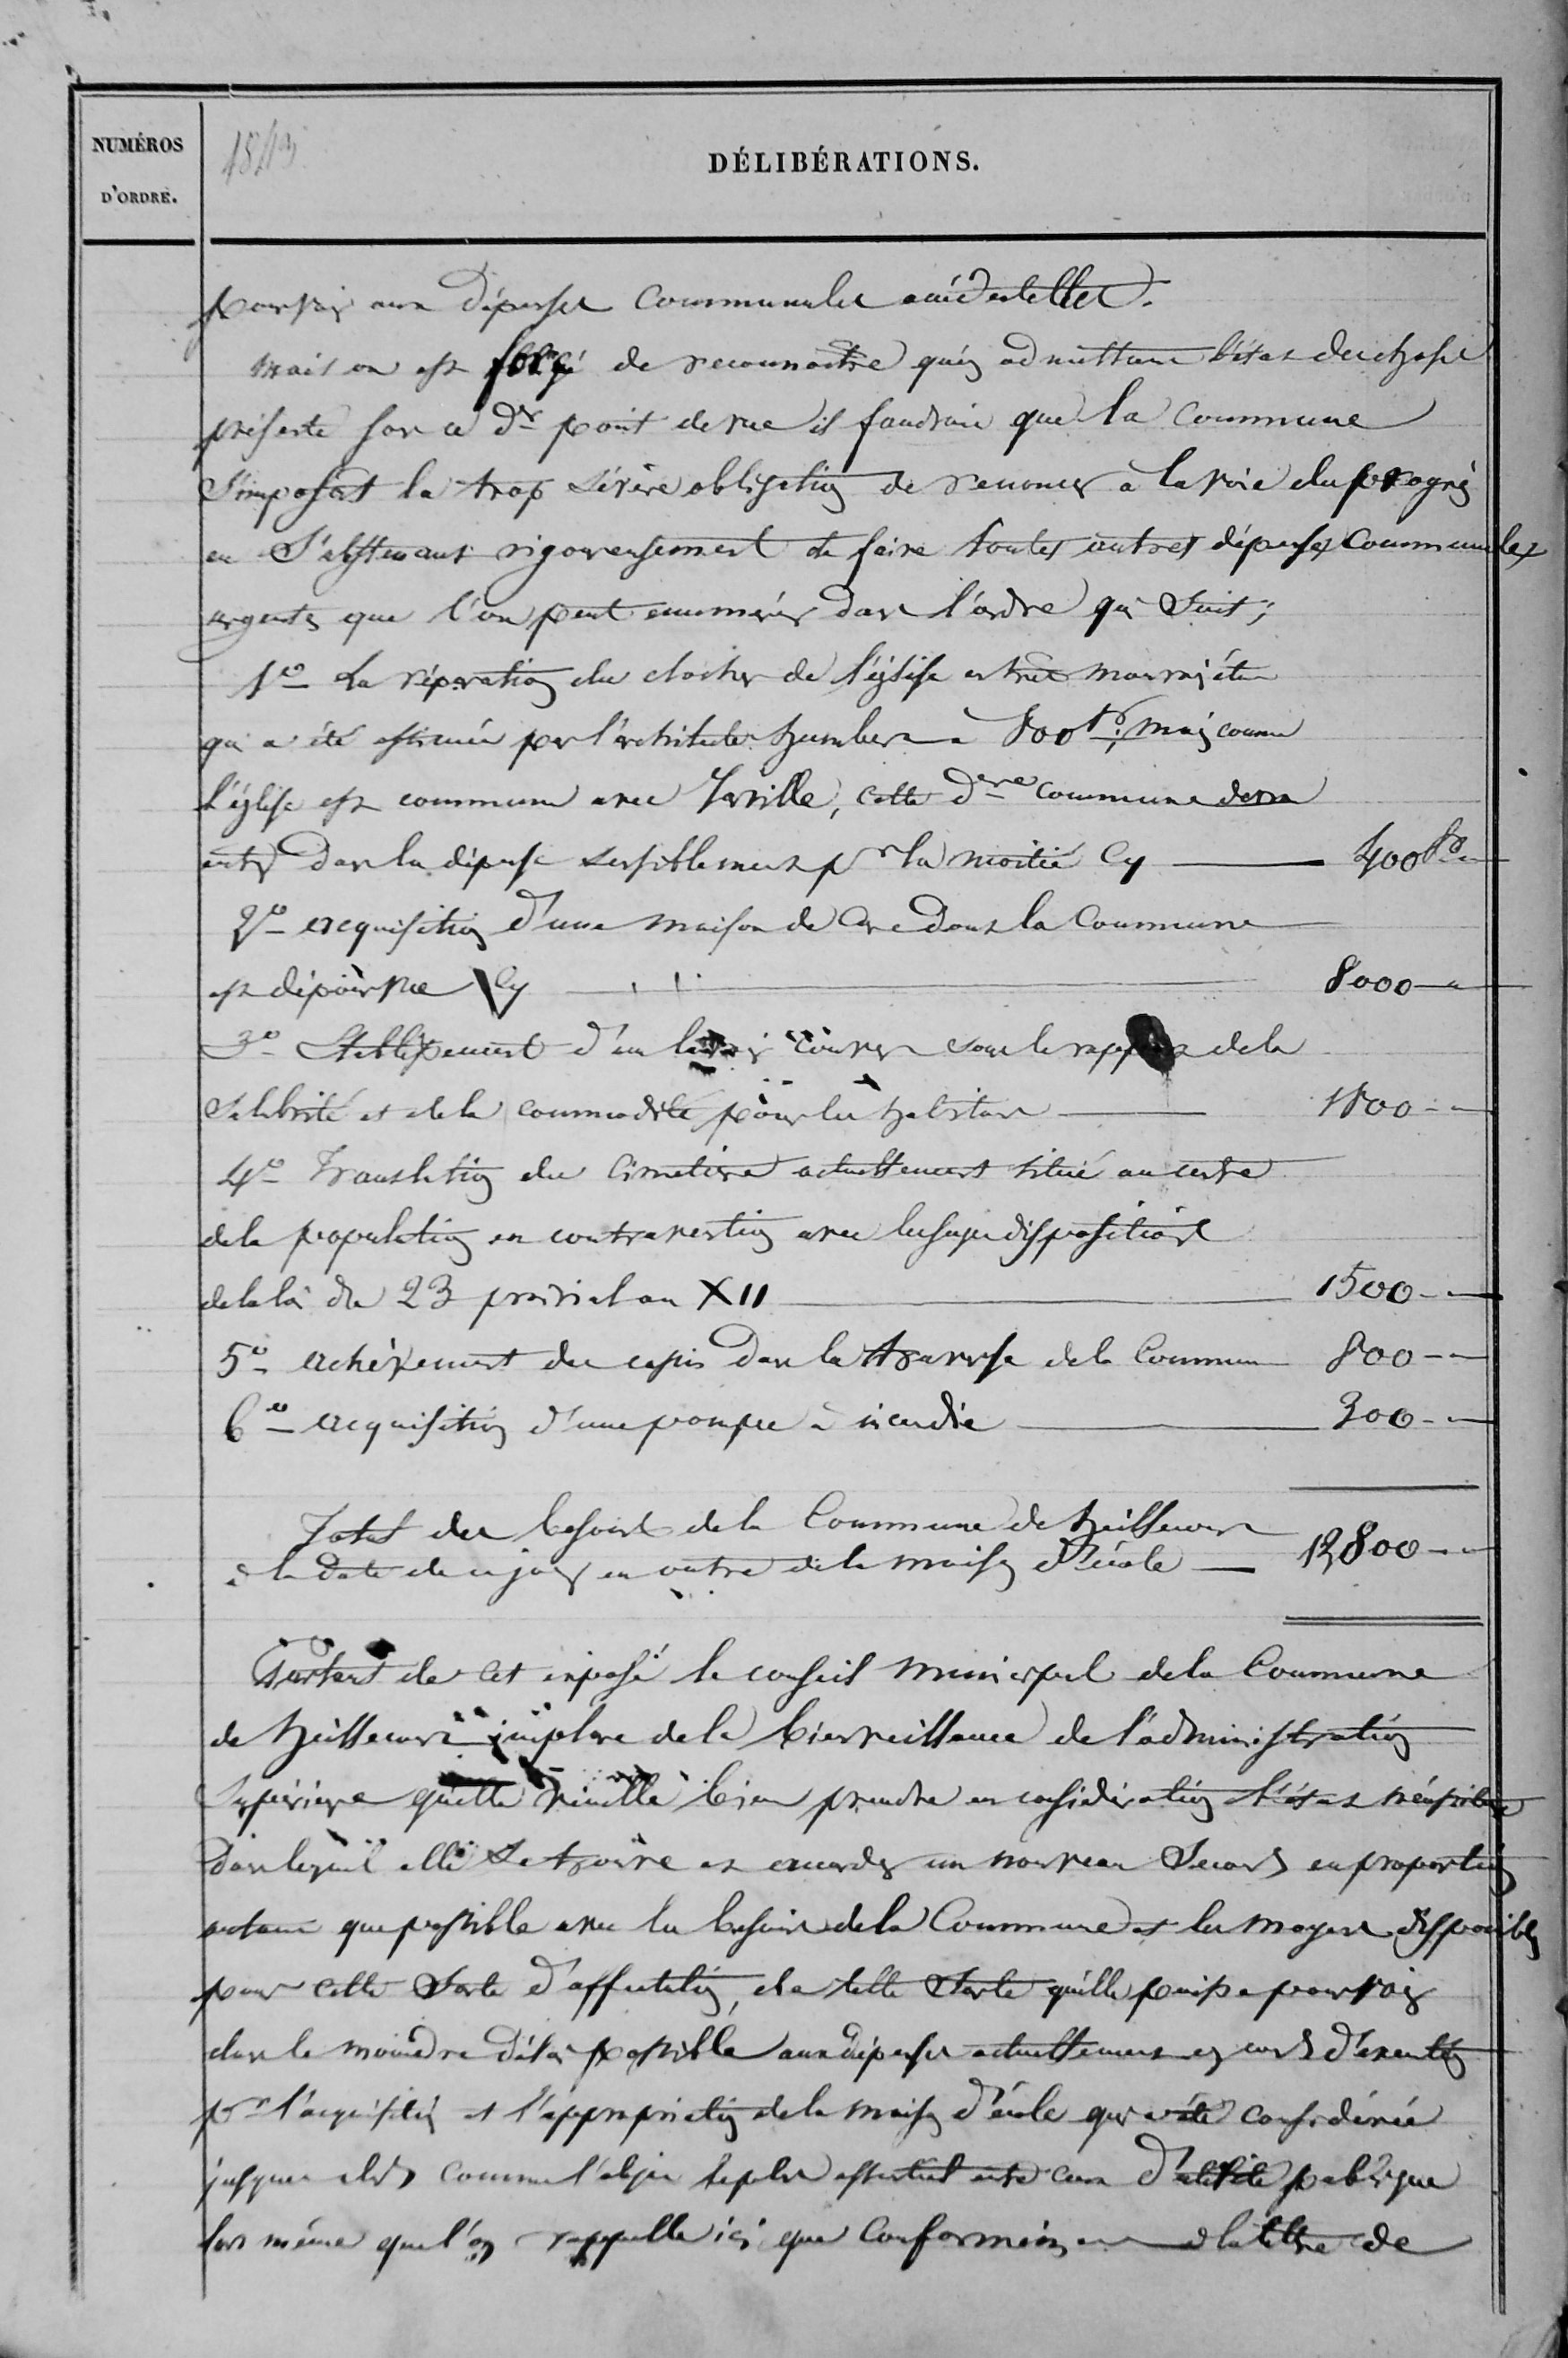 NUMÉROS
D'ORDRE.
1843
DÉLIBÉRATIONS.
pourvoir aux dépenses Communales accidentelles.
mais on est obligé de reconnaitre qu'en admettant l'état des choses
présenté sous ce dr point de vue il faudrait que la Commune
S'imposât la trop sévère obligation de renoncer à la voie du progrès
en S'abstenant rigoureusement de faire toutes autres dépenses Communales
urgentes que l'on peut enumérer dans l'ordre qui Suit;
1o La réparation du clocher de l'église en très mauvais état
qui a été estimée par l'architecte humbert a 800 f; mais comme
l'église est commune avec Jarville, cette dere Commune devra
entrer dans la dépense sensiblement pr la moitié Cy 400 f
2o acquisition d'une maison de Cure dont la Commune
est dépourvue Cy 8000
3o Etablissement d'un lavoir couvert sous le rapport de la
Salubrité et de la commodité pour les habitans 1800
4o Translation du Cimetière actuellement situé au centre
de la population en contravention avec les sages dispositions
de la loi du 23 prairial an XII 1500
5o achèvement des cassis dans la traverse de la Commune 800
6o acquisition d'une pompe à incendie 300
Total des besoins de la Commune de heillecourt
à la date de ce jour en outre de la maison d'école 12800
Partant de cet exposé le conseil Municipal de la Commune
de heillecourt implore de la bienveillance de l'administration
Supérieure qu'elle veuille bien prendre en considération l'état
dans lequel elle Se trouve et accorder un nouveau Secours en proportion
autant que possible avec les besoins de la Commune et les moyens disponibles
pour cette Sorte d'affectation, de telle Sorte qu'elle puisse pourvoir
dans le moindre délai possible aux dépenses actuellement en cours d'exécution
pr l'acquisition et l'appropriation de la maison d'école qui a été considérée
jusques alors comme l'objet le plus essentiel d'utilité publique
lors même que l'on rappelle ici que Conformément à la lettre de